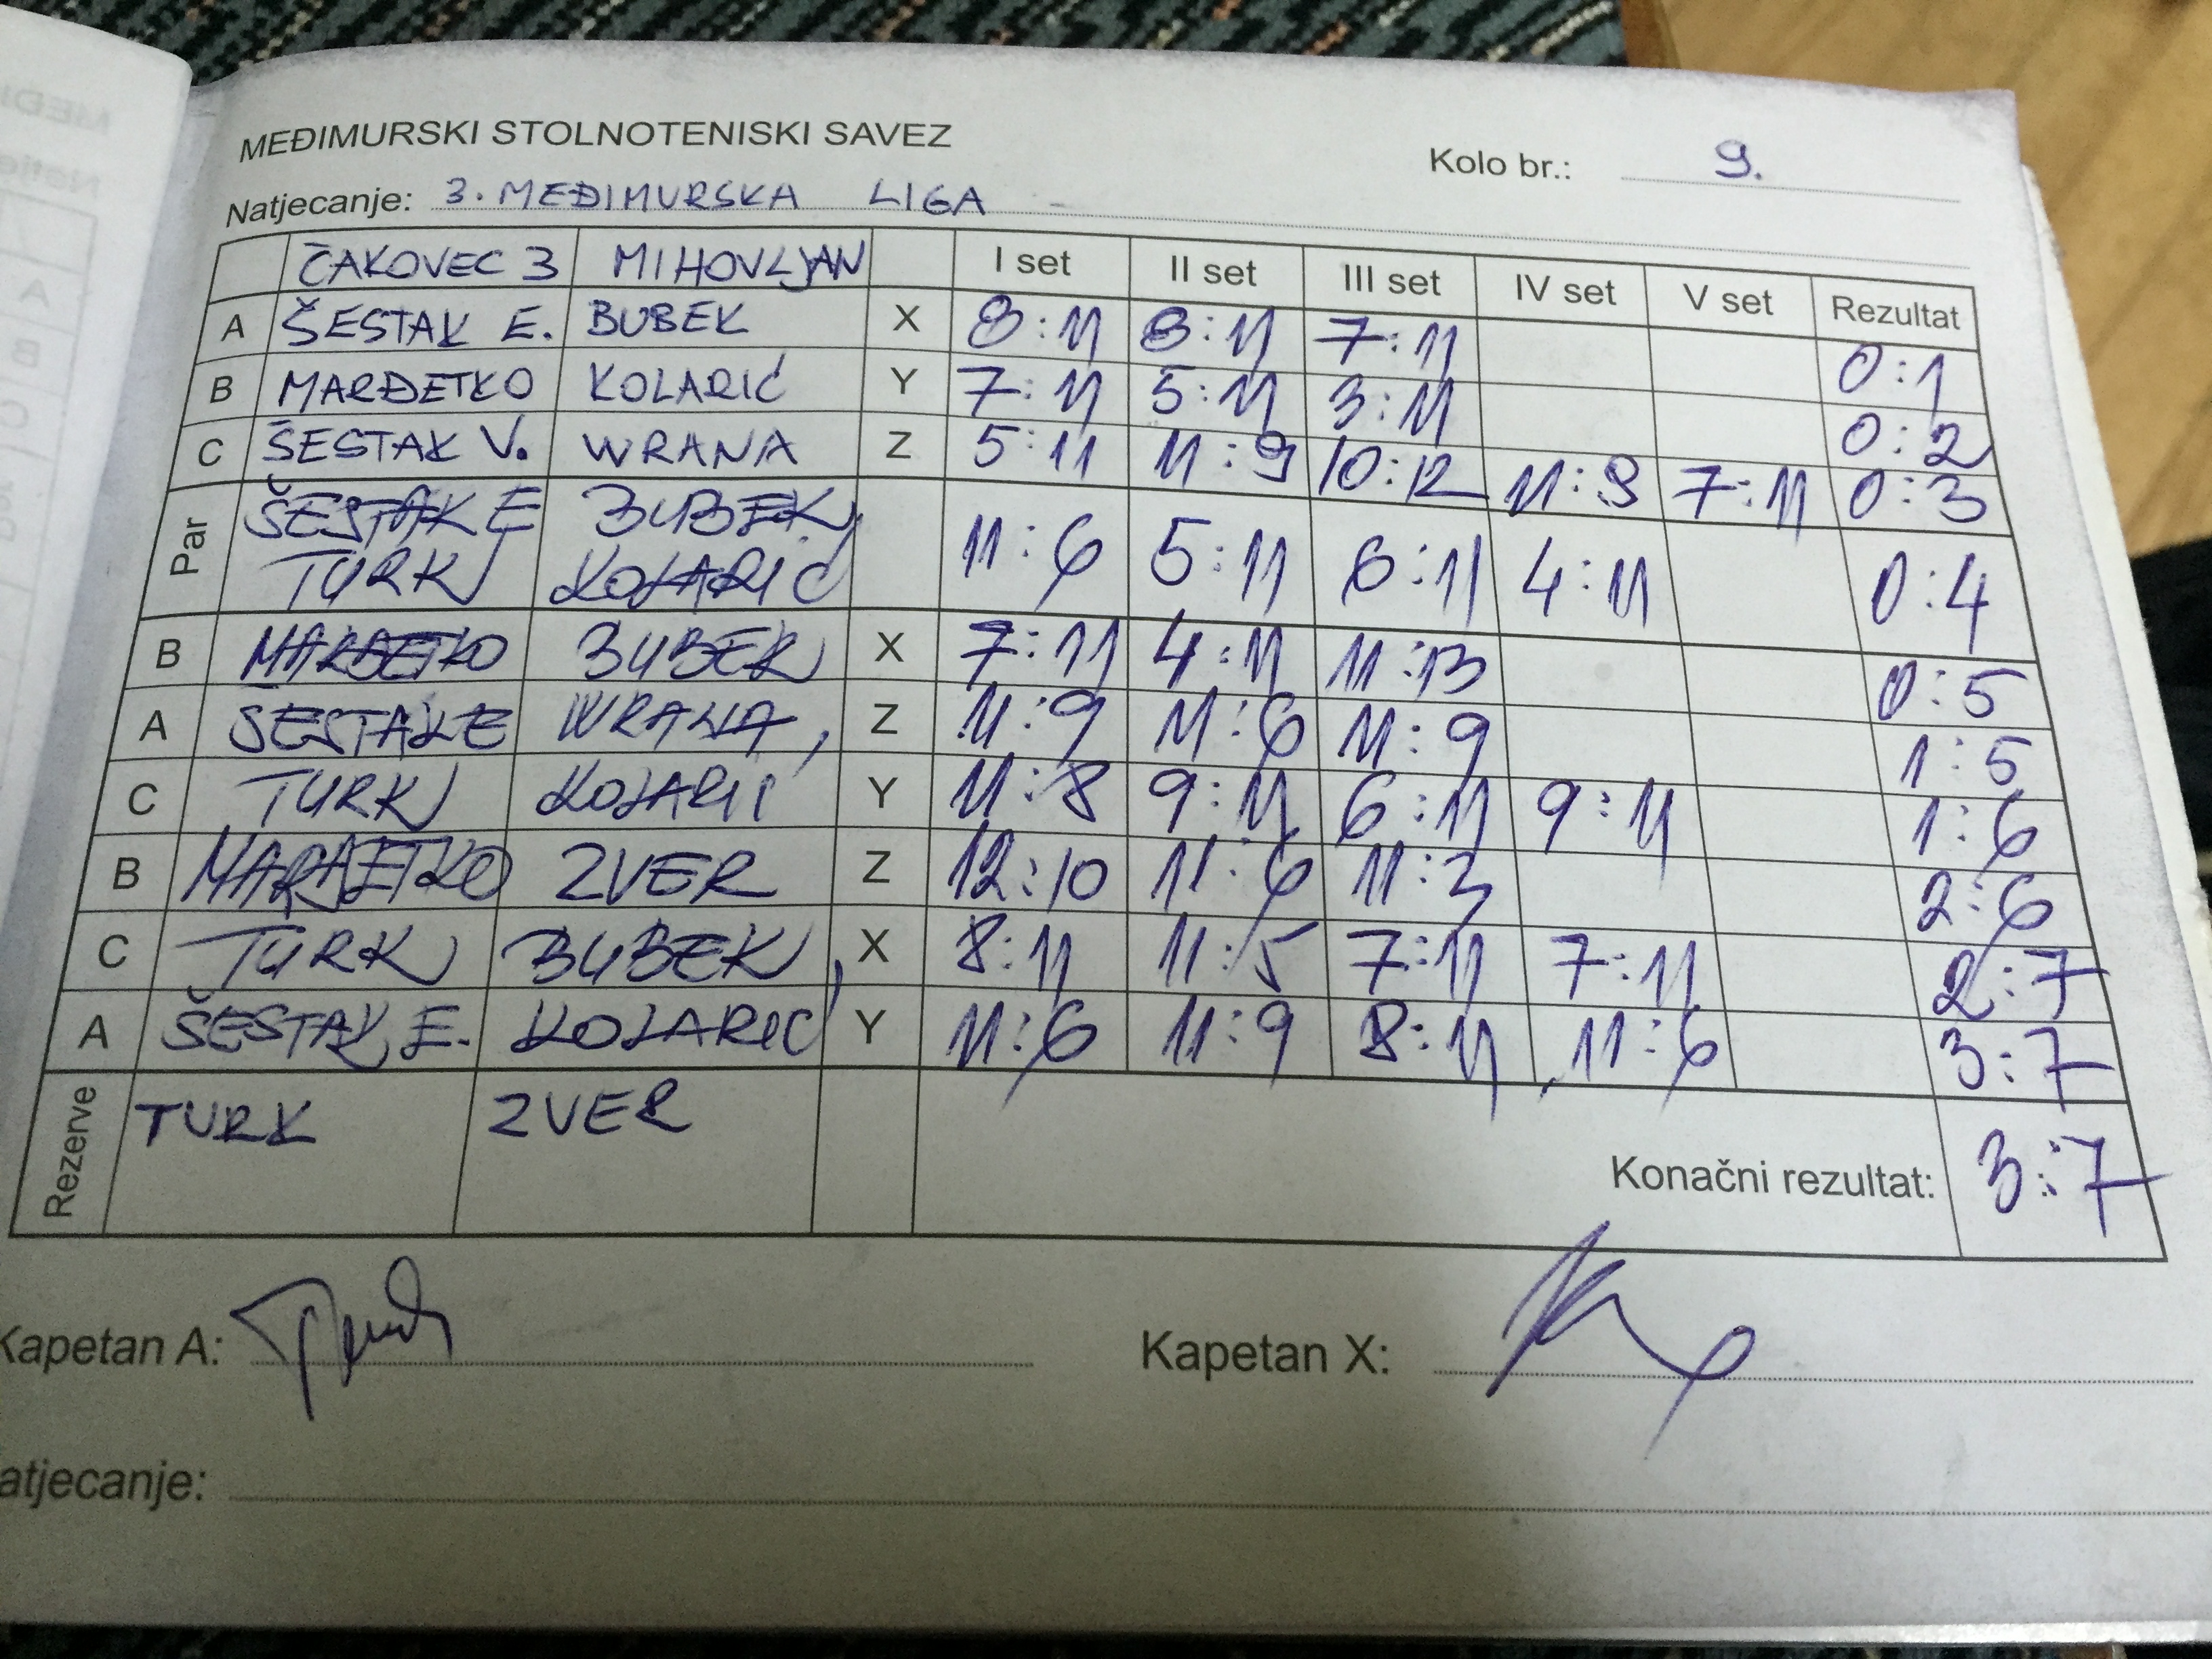 MEĐIMURSKI STOLNOTENISKI SAVEZ
Kolo br.: 9.
Natjecanje: 3. MEĐIMURSKA LIGA
ČAKOVEC 3 MIHOVLJAN I set II set III set IV set V set Rezultat
A ŠESTAK E. BUBEK X 8:11 8:11 7:11 0:1
B MARĐETKO KOLARIĆ Y 7:11 5:11 3:11 0:2
C ŠESTAK V. WRANA Z 5:11 11:9 10:12 11:9 7:11 0:3
Par ŠESTAK E BUBEK 11:6 5:11 6:11 4:11 0:4
TURK KOLARIĆ
B MARĐETKO BUBEK X 7:11 4:11 11:13 0:5
A ŠESTAK E WRANA Z 11:9 11:6 11:9 1:5
C TURK KOLARIĆ Y 11:8 9:11 6:11 9:11 1:6
B MARĐETKO ZVER Z 12:10 11:6 11:3 2:6
C TURK BUBEK X 8:11 11:5 7:11 7:11 2:7
A ŠESTAK E. KOLARIĆ Y 11:6 11:9 8:11 11:6 3:7
Rezerve TURK ZVER
Konačni rezultat: 3:7
Kapetan A: Kapetan X:
atjecanje: